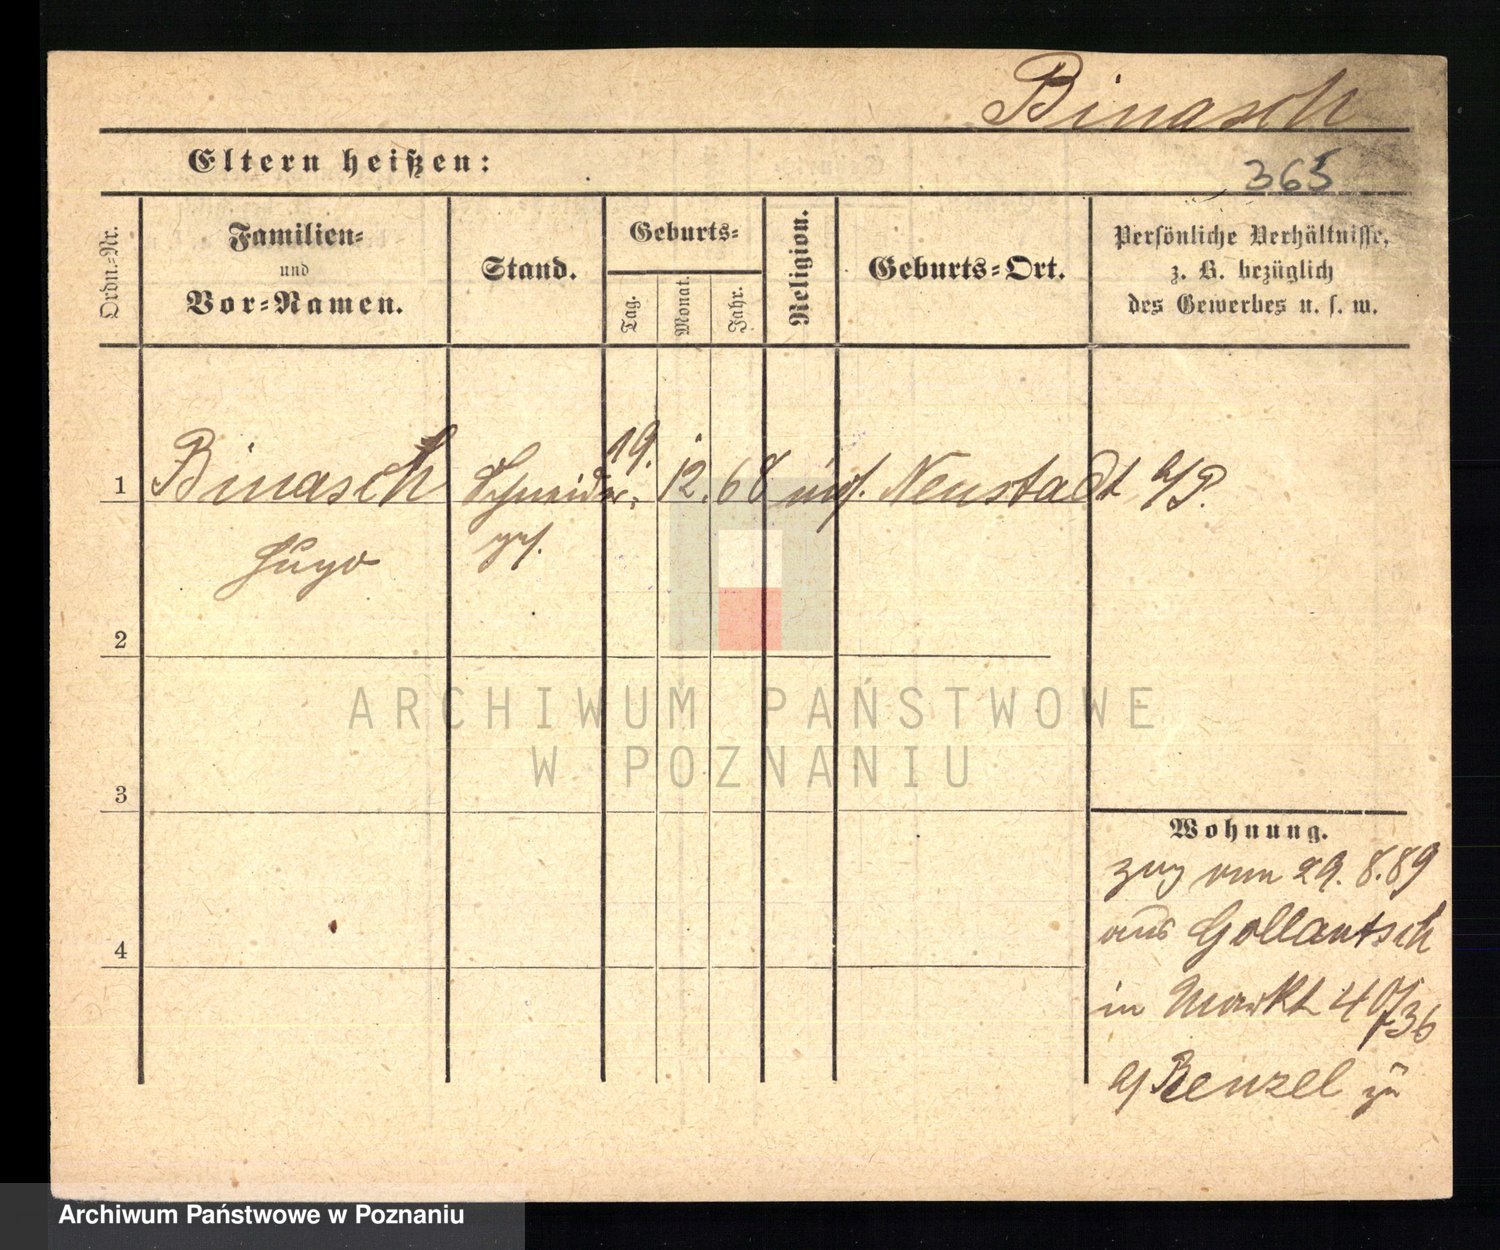 Binasch
Eltern heißen:
365
Ordn.-Nr.
Familien-
und
Vor-Namen.
Stand.
Geburts-
Tag.
Monat.
Jahr.
Religion.
Geburts-Ort.
Persönliche Verhältnisse,
z. B. bezüglich
des Gewerbes u. s. w.
1 Binasch Schneider- 19. 12. 68 Neustadt a/P.
Hugo
2
3
4
Wohnung.
zug vom 29. 8. 89
aus Gollantsch
in Markt 40/36
Benzel
ARCHIWUM PAŃSTWOWE
W POZNANIU
Archiwum Państwowe w Poznaniu